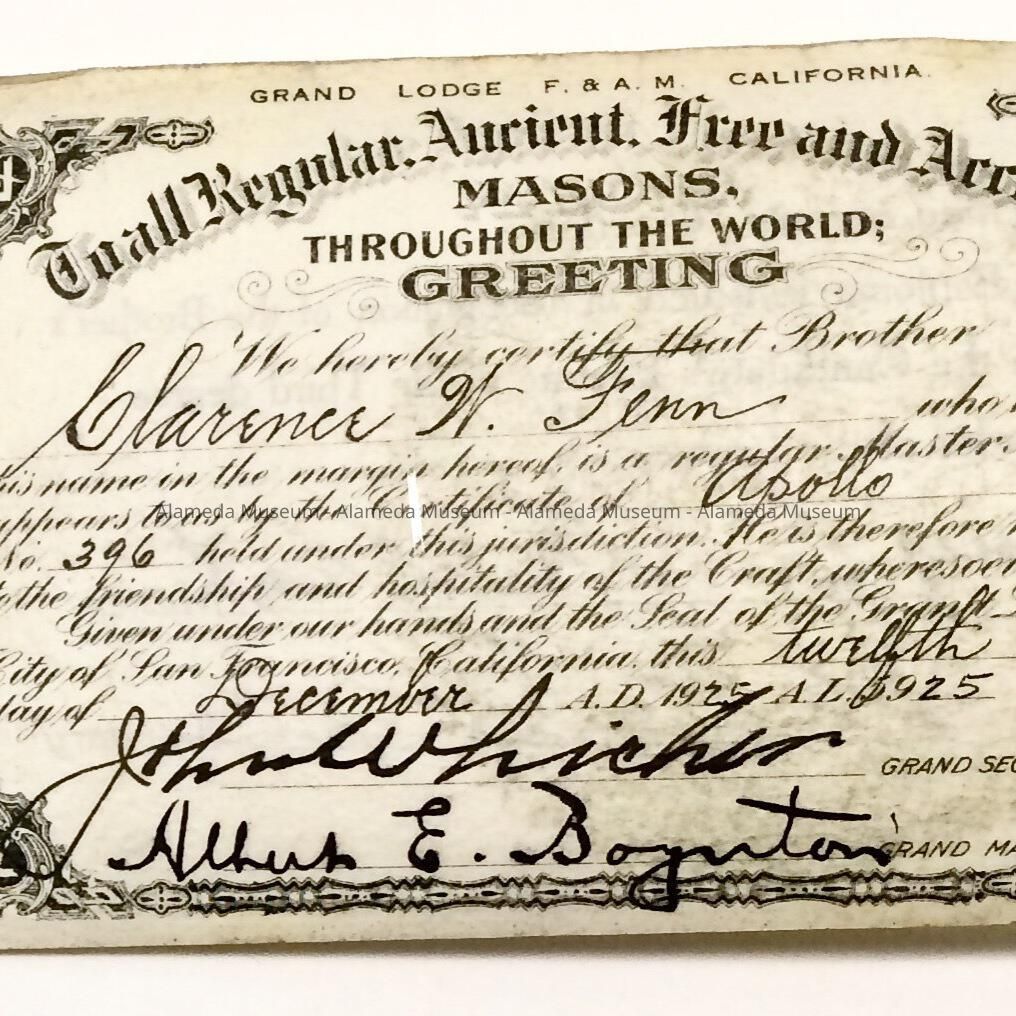 GRAND LODGE F. & A. M. CALIFORNIA.
To all Regular, Ancient, Free and Acc
MASONS,
THROUGHOUT THE WORLD;
GREETING
We hereby certify that Brother
Clarence W. Fenn who
is name in the margin hereof, is a regular Master
appears to us by the Certificate of Apollo
Alameda Museum - Alameda Museum - Alameda Museum - Alameda Museum
No. 396 held under this jurisdiction. He is therefore
to the friendship and hospitality of the Craft, wheresoev
Given under our hands and the Seal of the Grand
City of San Francisco, California, this twelfth
day of December A.D. 1925 A.L. 5925
John Whicher GRAND SEC
Albert E. Boynton GRAND MA